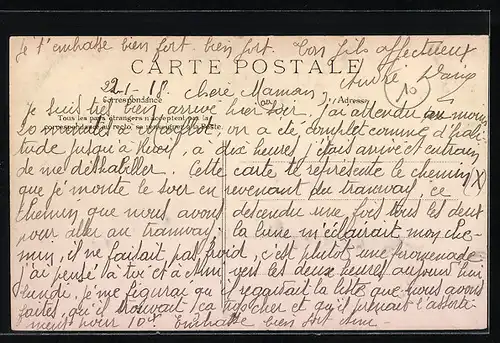 Je t'embrasse bien fort bien fort. Ton fils affectueux
André Davis
CARTE POSTALE
22-1-18. Chère Maman,
Correspondance
Adresse
Je suis très bien arrivé hier soir, j'ai attendu au moins
Tous les pays étrangers n'acceptent pas la
20 minutes à Maillot, on a été complet comme d'habi
correspondance au recto se
tude jusqu'à Rueil, à dix heures j'étais arrivé et entrain
de me déshabiller. Cette carte te représente le chemin (X)
que je monte le soir en revenant du tramway, ce
chemin que nous avons descendu une fois tous les deux
pour aller au tramway, la lune m'éclairait mon che-
min, il ne faisait pas froid, c'est plutôt une promenade
j'ai pensé à toi et à vers les deux heures aujourd'hui
lundi, je me figurai qu'il regardait la liste que nous avons
faites, qu'il trouvait ça pas cher et qu'il prenait l'assorti-
ment pour 10f. Embrasse bien fort